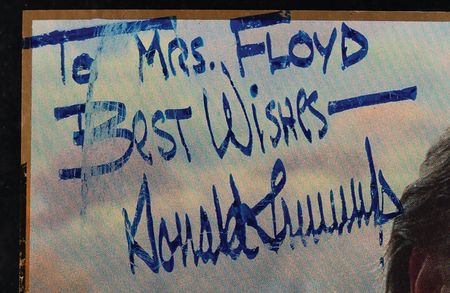 To Mrs. FLOYD
Best Wishes—
Donald Trump